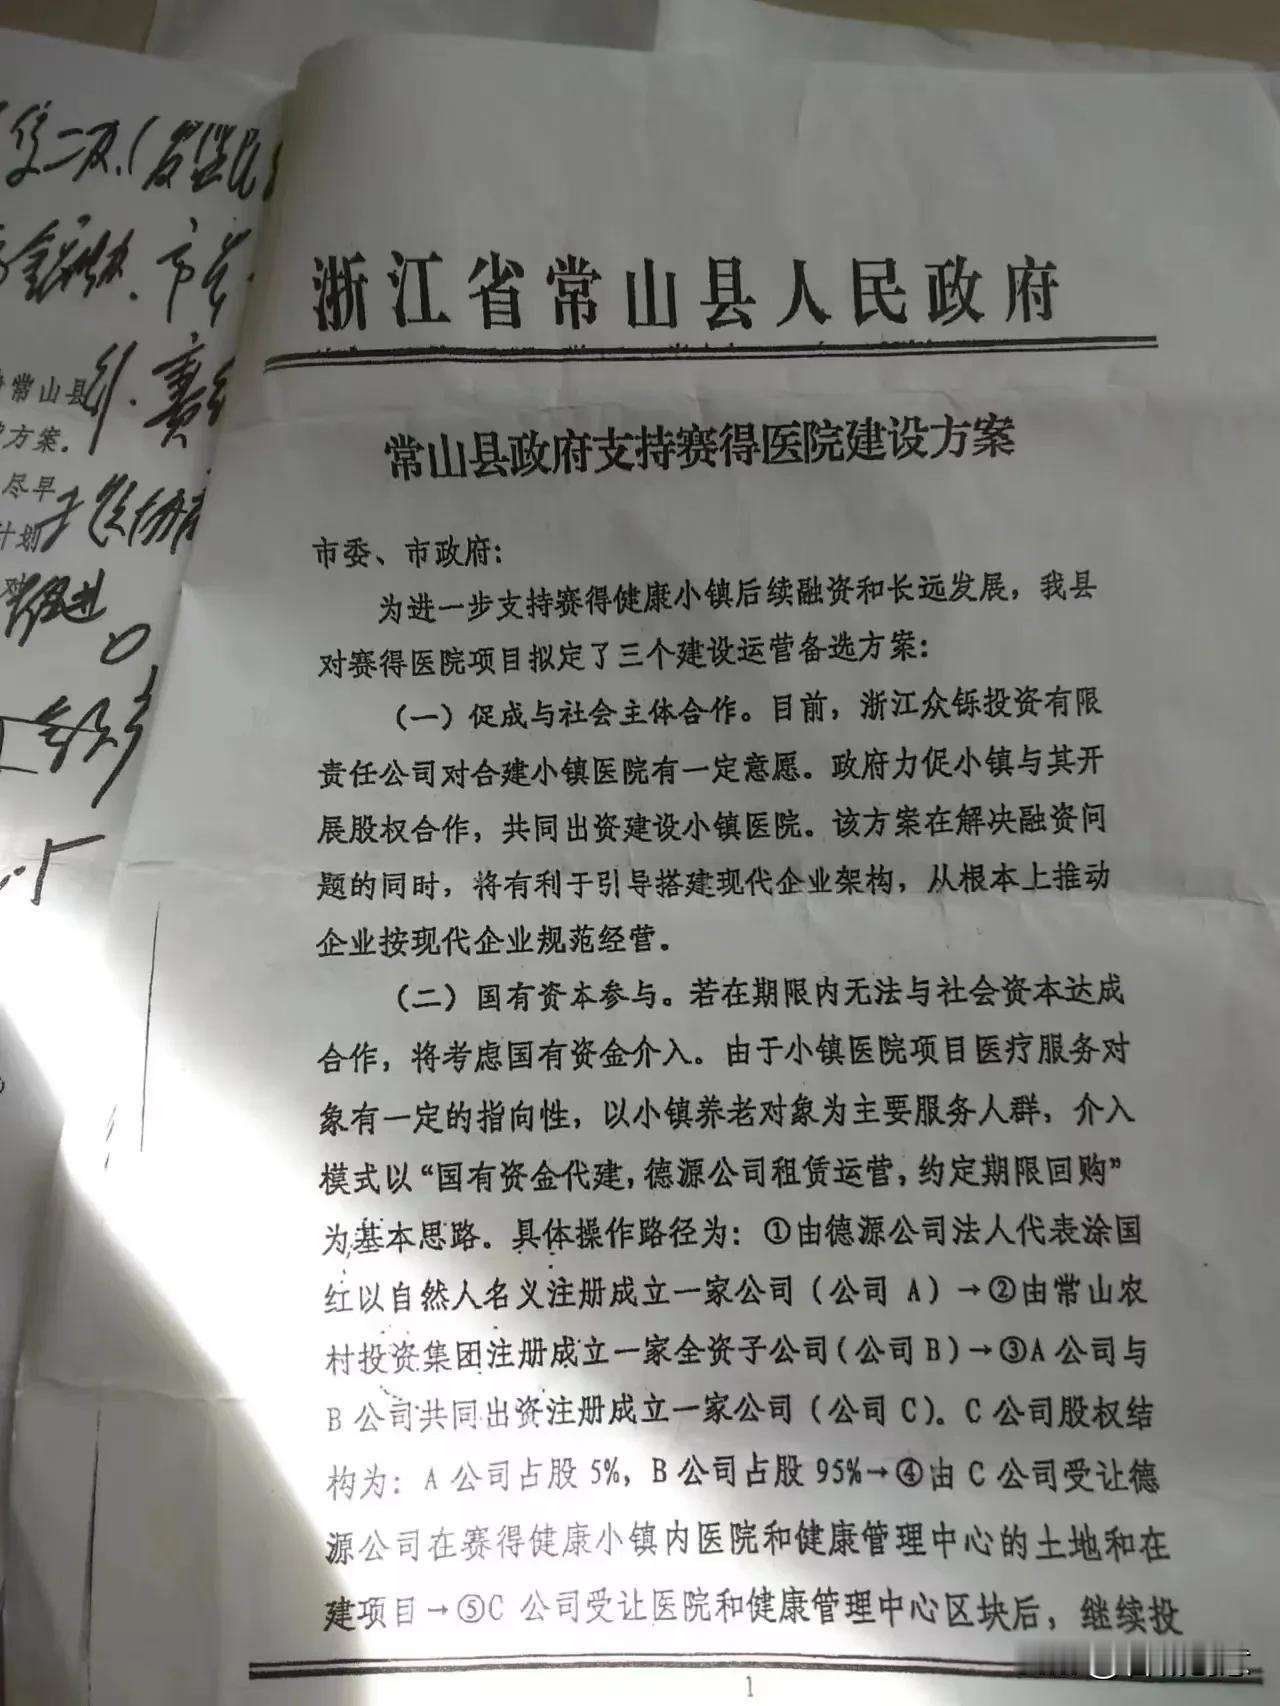 浙江省常山县人民政府
常山县政府支持赛得医院建设方案
市委、市政府：
为进一步支持赛得健康小镇后续融资和长远发展，我县
对赛得医院项目拟定了三个建设运营备选方案：
（一）促成与社会主体合作。目前，浙江众铄投资有限
责任公司对合建小镇医院有一定意愿。政府力促小镇与其开
展股权合作，共同出资建设小镇医院。该方案在解决融资问
题的同时，将有利于引导搭建现代企业架构，从根本上推动
企业按现代企业规范经营。
（二）国有资本参与。若在期限内无法与社会资本达成
合作，将考虑国有资金介入。由于小镇医院项目医疗服务对
象有一定的指向性，以小镇养老对象为主要服务人群，介入
模式以“国有资金代建，德源公司租赁运营，约定期限回购”
为基本思路。具体操作路径为：①由德源公司法人代表涂国
红以自然人名义注册成立一家公司（公司 A）→②由常山农
村投资集团注册成立一家全资子公司（公司 B）→③A 公司与
B 公司共同出资注册成立一家公司（公司 C）。C 公司股权结
构为：A 公司占股 5%，B 公司占股 95%→④由 C 公司受让德
源公司在赛得健康小镇内医院和健康管理中心的土地和在
建项目→⑤C 公司受让医院和健康管理中心区块后，继续投
1
常山县
方案.
尽早
计划